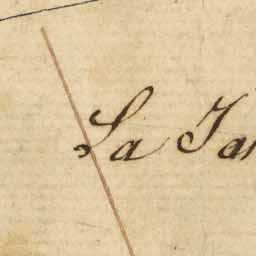 La Jan